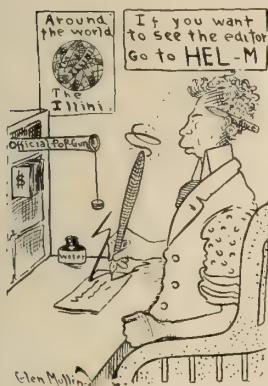 Around
the world
The
Illini.
If you want
to see the editor
Go to HEL-M
Official Pop Gun
$
Water
Glen Mullin